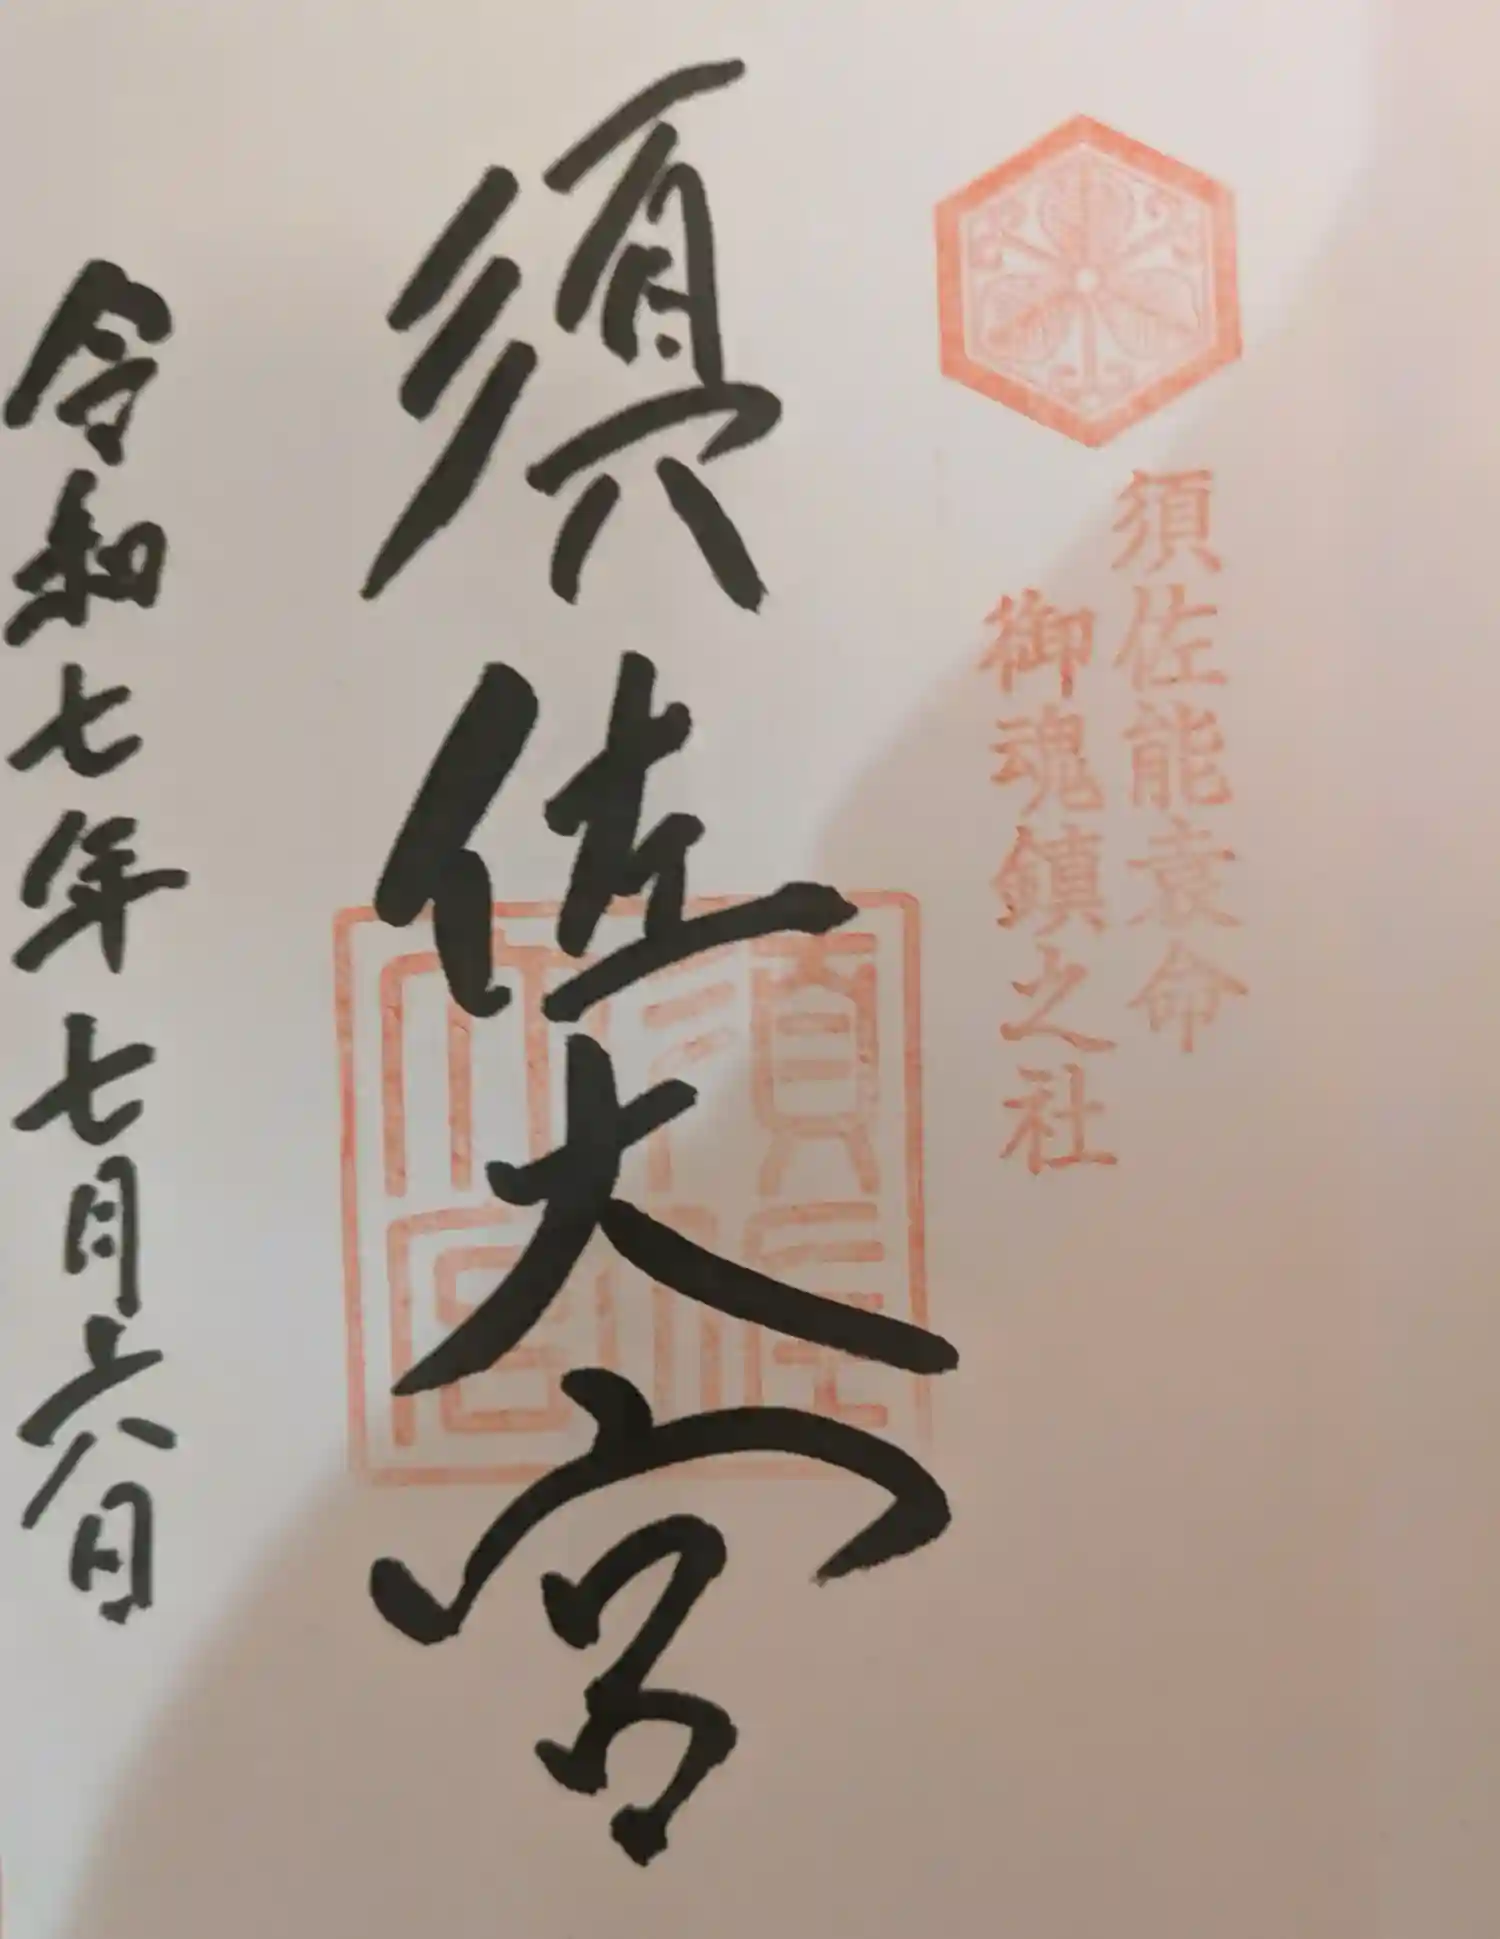 須佐能袁命
御魂鎮之社
須佐大宮
須佐大宮
令和七年七月六日